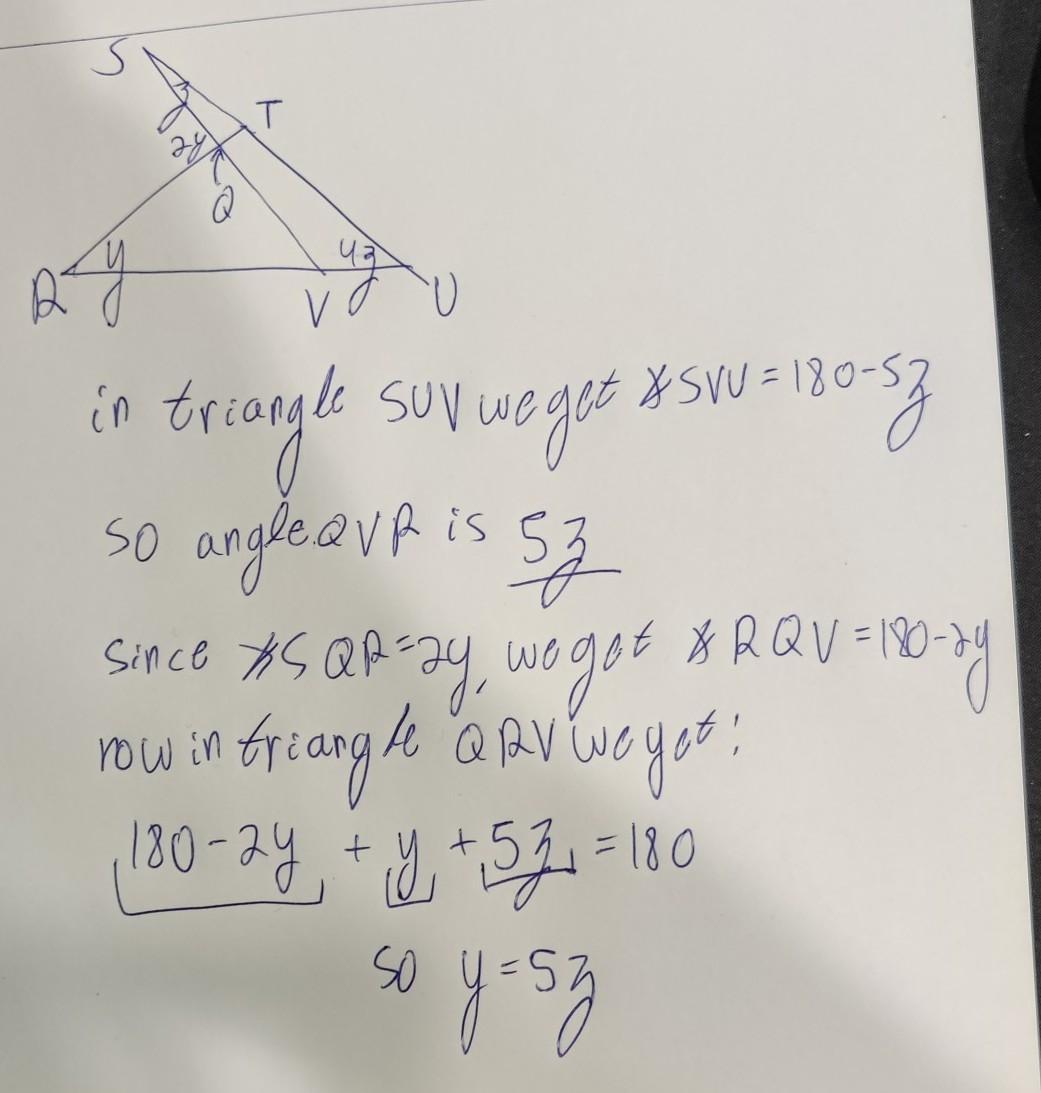 S
z
T
2y
Q
y
4z
R
V
U
in triangle SUV we get ∡SVU = 180-5z
so angle QVR is 5z
since ∡SQR=2y, we get ∡RQV=180-2y
now in triangle QRV we get:
180-2y + y + 5z = 180
so y=5z